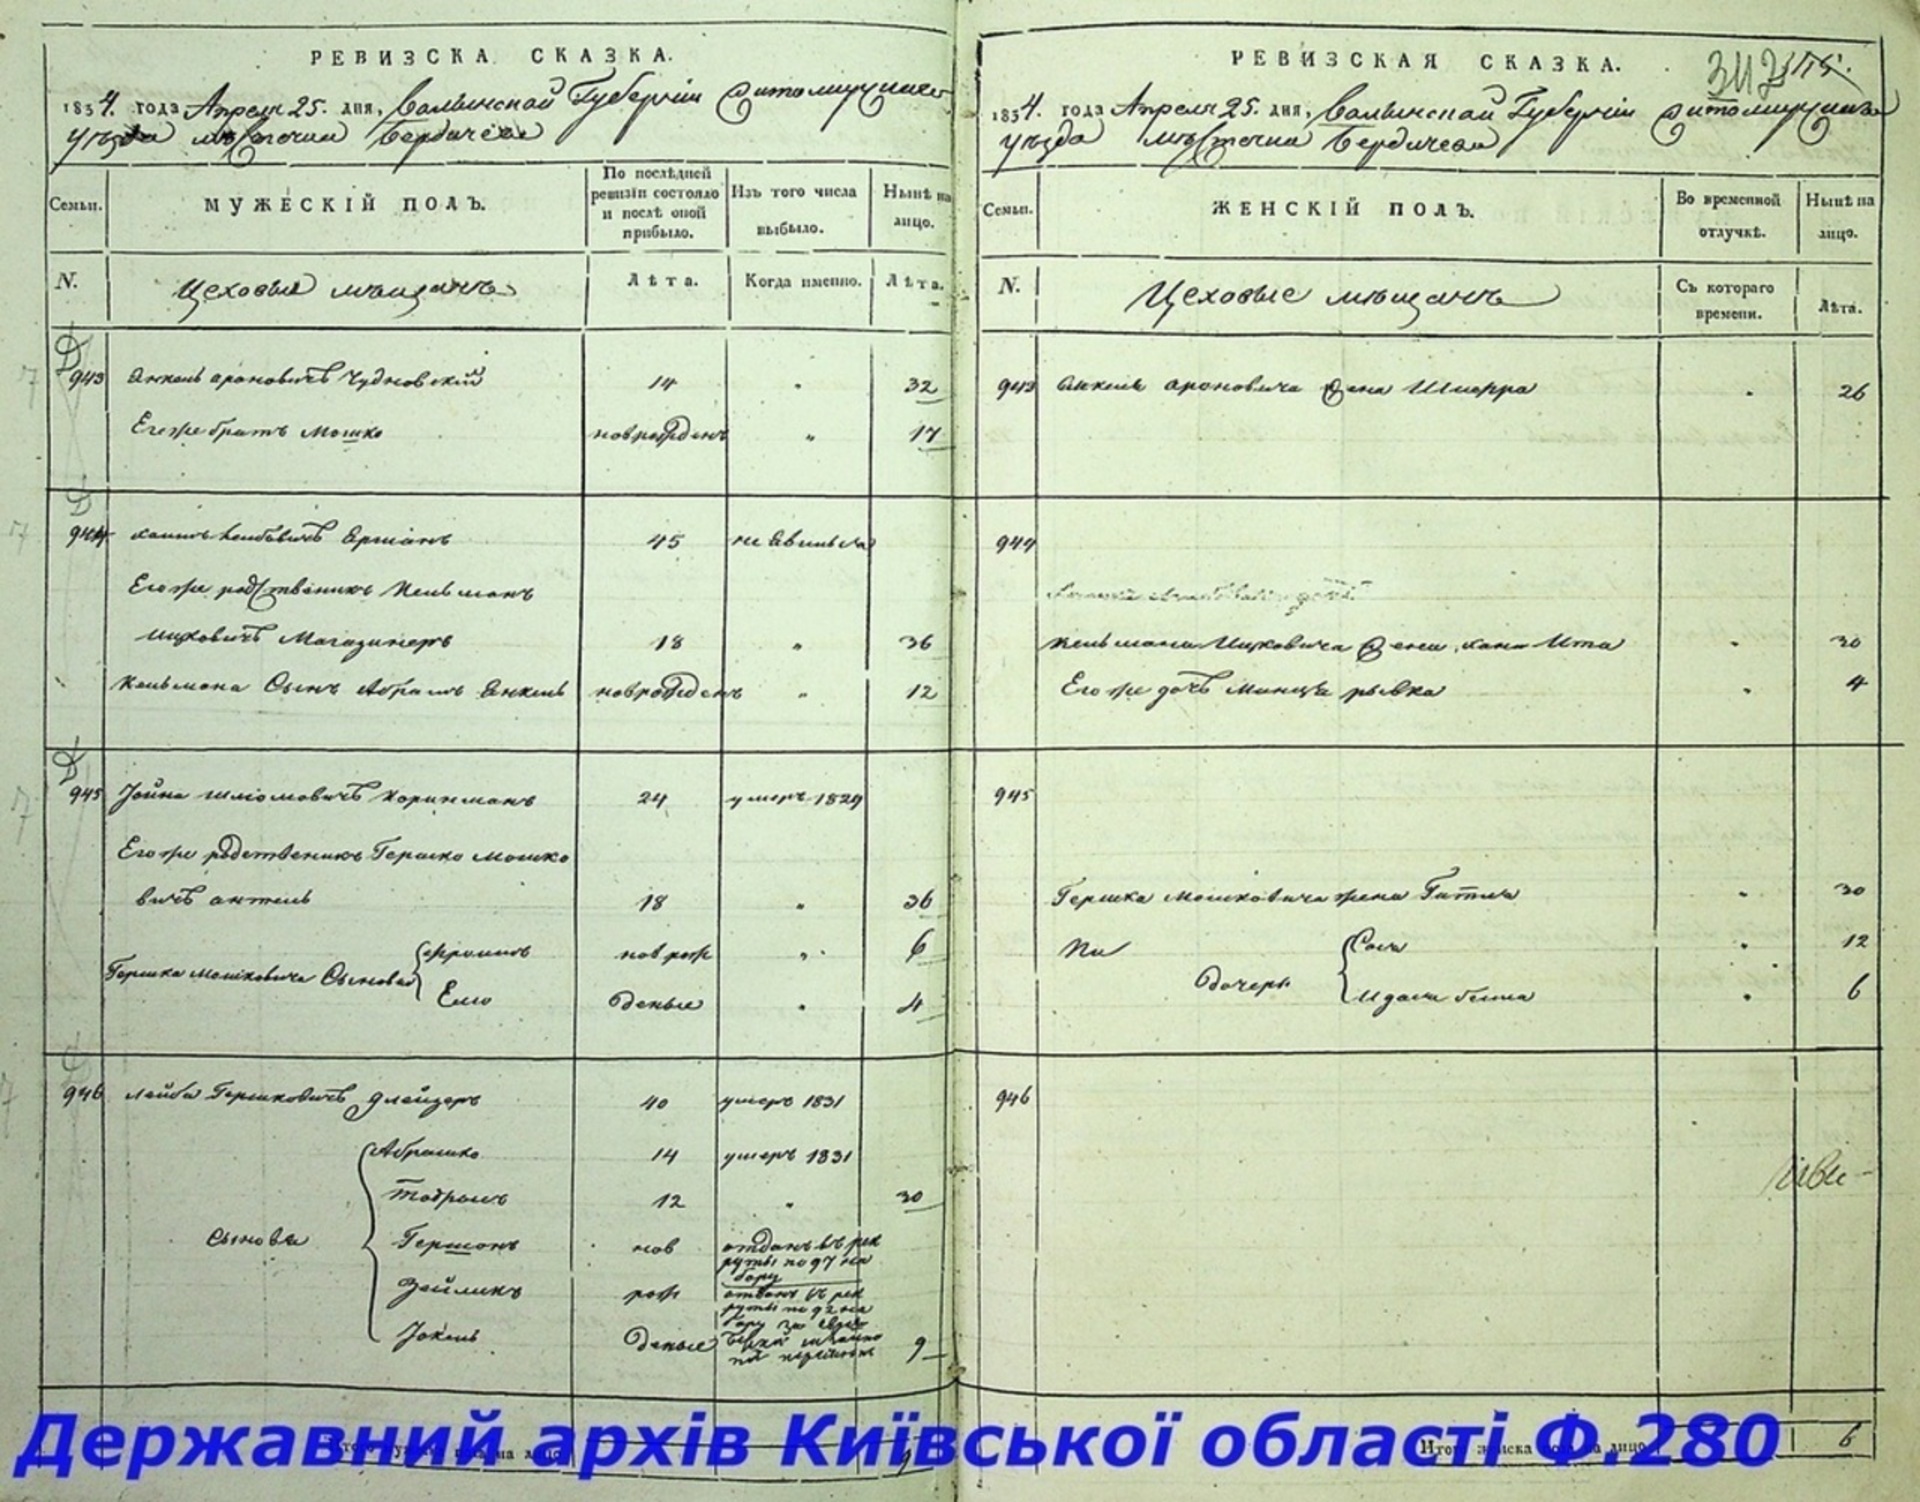 РЕВИЗСКА СКАЗКА.
1834. года Апреля 25. дня, Волынской Губернии Житомирскаго
уѣзда мѣсточка Бердичева
Семьи.
МУЖЕСКІЙ ПОЛЪ.
По послѣдней ревизіи состояло и послѣ оной прибыло.
Изъ того числа выбыло.
Нынѣ на лицо.
N.
Цеховые мѣщанъ
Лѣта.
Когда именно.
Лѣта.
943 Янкель Ароновичъ Чудновскій 14 " 32
Его же братъ Мошко новорожденъ " 17
944 Хаимъ Лейбовичъ 45 не явилься
Его же родственикъ Кельманъ
Ицковичъ Магазинеръ 18 " 36
Кельмана Сынъ Абрамъ Янкель новорожденъ " 12
945 Іойна Шліомовичъ Корикманъ 24 умеръ 1829
Его же родственикъ Гершко Мошко
вичъ 18 " 36
Гершка Мошковича Сыновья
Фроимъ нов рож " 6
Елио деные " 4
946 Лейба Гершковичъ Флейзеръ 40 умеръ 1831
Сыновья
Абрашко 14 умеръ 1831
12 " 30
Гершонъ нов отданъ въ рек
руты по 97 на
бору
Зейликъ рож отданъ въ рек
руты по 92 на
бору за
Іокель деные 9
9
РЕВИЗСКАЯ СКАЗКА.
1834. года Апреля 25. дня, Волынской Губернии Житомирскаго
уѣзда мѣсточка Бердичева
Семьи.
ЖЕНСКІЙ ПОЛЪ.
Во временной отлучкѣ.
Нынѣ на лицо.
N.
Цеховые мѣщанъ
Съ котораго времени.
Лѣта.
943 Янкеля Ароновича жена Шифра " 26
944
Кельмана Ицковича жена Хана Ита " 30
Его же дочь Минця Рывка " 4
945
Гершка Мошковича жена Гитля " 30
Ии Дочери
Сося " 12
" 6
946
Итого женска пола на лицо 6
Державний архів Київської області Ф.280